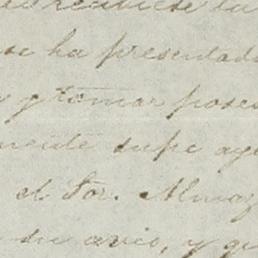 se ha presentado
y tomar poses
mente supe ay
el Sor. Almaz
su aviso, y qu